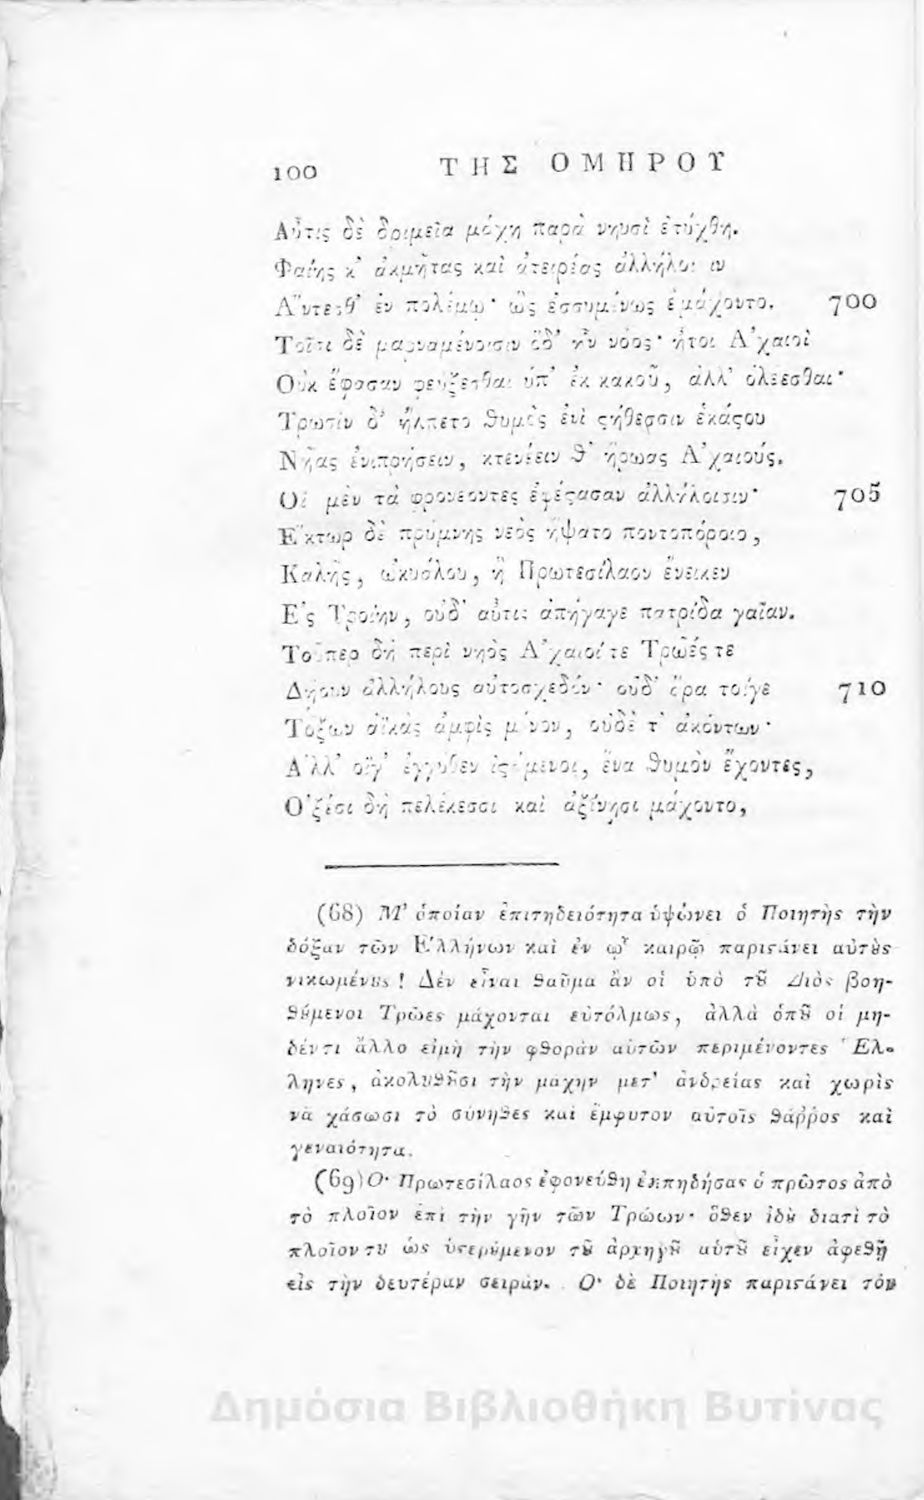 100 ΤΗΣ ΟΜΗΡΟΥ
Αὖτις δὲ δριμεῖα μάχη παρὰ νηυσὶ ἐτύχθη.
Φαίης κ' ἀκμῆτας καὶ ἀτειρέας ἀλλήλοισιν
Ἄντεσθ' ἐν πολέμῳ· ὣς ἐσσυμένως ἐμάχοντο. 700
Τοῖσι δὲ μαρναμένοισιν ὅδ' ἦν νόος· ἤτοι Ἀχαιοὶ
Οὐκ ἔφασαν φεύξεσθαι ὑπ' ἐκ κακοῦ, ἀλλ' ὀλέεσθαι·
Τρωσὶν δ' ἤλπετο θυμὸς ἐνὶ ϛήθεσσιν ἑκάϛου
Νῆας ἐνιπρήσειν, κτενέειν θ' ἥρωας Ἀχαιούς.
Οἱ μὲν τὰ φρονέοντες ἐφέϛασαν ἀλλήλοισιν· 705
Ἕκτωρ δὲ πρύμνης νεὸς ἥψατο ποντοπόροιο,
Καλῆς, ὠκυάλου, ἣ Πρωτεσίλαον ἔνεικεν
Ἐς Τροίην, οὐδ' αὖτις ἀπήγαγε πατρίδα γαῖαν.
Τοῦπερ δὴ περὶ νηὸς Ἀχαιοί τε Τρῶές τε
Δῄουν ἀλλήλους αὐτοσχεδόν· οὐδ' ἄρα τοίγε 710
Τόξων ἀϊκὰς ἀμφὶς μένον, οὐδέ τ' ἀκόντων·
Ἀλλ' οἵγ' ἐγγύθεν ἱϛάμενοι, ἕνα θυμὸν ἔχοντες,
Ὀξέσι δὴ πελέκεσσι καὶ ἀξίνῃσι μάχοντο,
(68) Μ' ὁποίαν ἐπιτηδειότητα ὑψώνει ὁ Ποιητὴς τὴν
δόξαν τῶν Ἑλλήνων καὶ ἐν ᾧ καιρῷ παριϛάνει αὐτȣ̀ς
νικωμένȣς! Δὲν εἶναι θαῦμα ἂν οἱ ὑπὸ τȣ͂ Διὸς βοη-
θȣ́μενοι Τρῶες μάχονται εὐτόλμως, ἀλλὰ ὁπȣ͂ οἱ μη-
δέν τι ἄλλο εἰμὴ τὴν φθορὰν αὐτῶν περιμένοντες Ἕλ-
ληνες, ἀκολȣθȣ͂σι τὴν μάχην μετ' ἀνδρείας καὶ χωρὶς
νὰ χάσωσι τὸ σύνηθες καὶ ἔμφυτον αὐτοῖς θάῤῥος καὶ
γεναιότητα.
(69) Ὁ Πρωτεσίλαος ἐφονεύθη ἐκπηδήσας ὁ πρῶτος ἀπὸ
τὸ πλοῖον ἐπὶ τὴν γῆν τῶν Τρώων· ὅθεν ἰδȣ̀ διατὶ τὸ
πλοῖον τȣ ὡς ὑϛερȣ́μενον τȣ͂ ἀρχηγȣ͂ αὐτȣ͂ εἶχεν ἀφεθῆ
εἰς τὴν δευτέραν σειράν. Ὁ δὲ Ποιητὴς παριϛάνει τὸν
Δημόσια Βιβλιοθήκη Βυτίνας